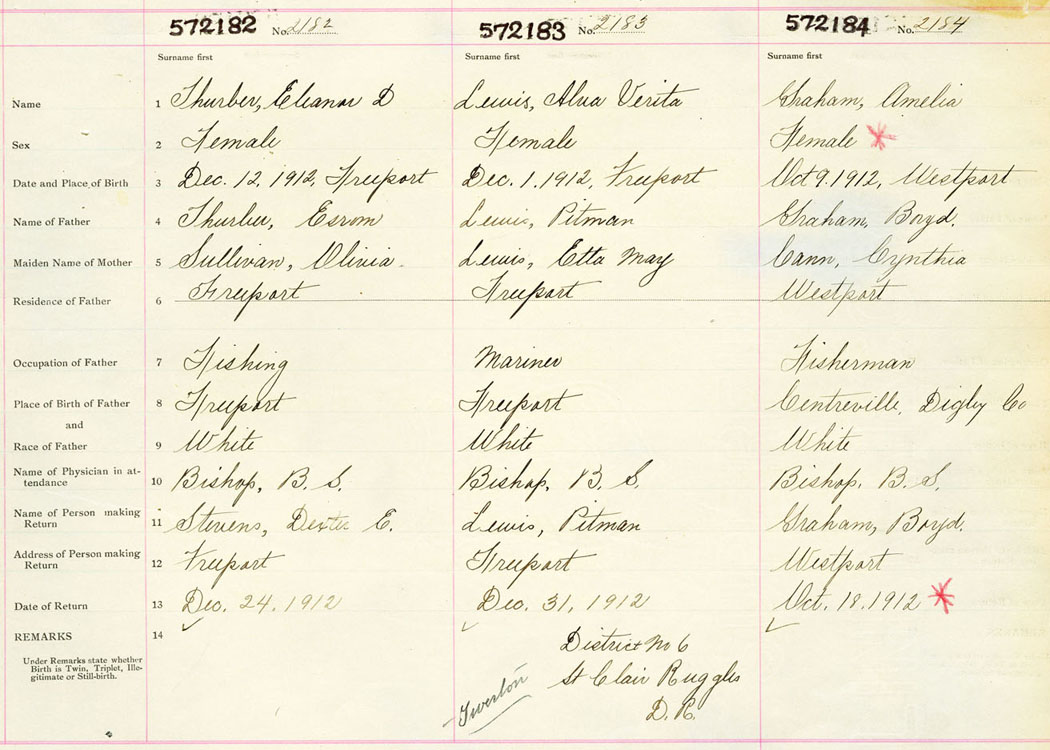 572182 No. 2182 572183 No. 2183 572184 No. 2184
Surname first Surname first Surname first
Name 1 Thurber, Eleanor D Lewis, Alva Verita Graham, Amelia
Sex 2 Female Female Female
Date and Place of Birth 3 Dec. 12, 1912, Freeport Dec. 1. 1912, Freeport Oct 9. 1912, Westport
Name of Father 4 Thurber, Esrom Lewis, Pitman Graham, Boyd.
Maiden Name of Mother 5 Sullivan, Olivia. Lewis, Etta May Cann, Cynthia
Residence of Father 6 Freeport Freeport Westport
Occupation of Father 7 Fishing Mariner Fisherman
Place of Birth of Father 8 Freeport Freeport Centreville, Digby Co
and
Race of Father 9 White White White
Name of Physician in at-
tendance 10 Bishop, B. S. Bishop, B. S. Bishop. B. S.
Name of Person making
Return 11 Stevens, Dexter E. Lewis, Pitman Graham, Boyd.
Address of Person making
Return 12 Freeport Freeport Westport
Date of Return 13 Dec. 24. 1912 Dec. 31, 1912 Oct. 18. 1912
REMARKS 14
Under Remarks state whether
Birth is Twin, Triplet, Ille-
gitimate or Still-birth.
District No 6
St Clair Ruggles
D. R.
Tiverton